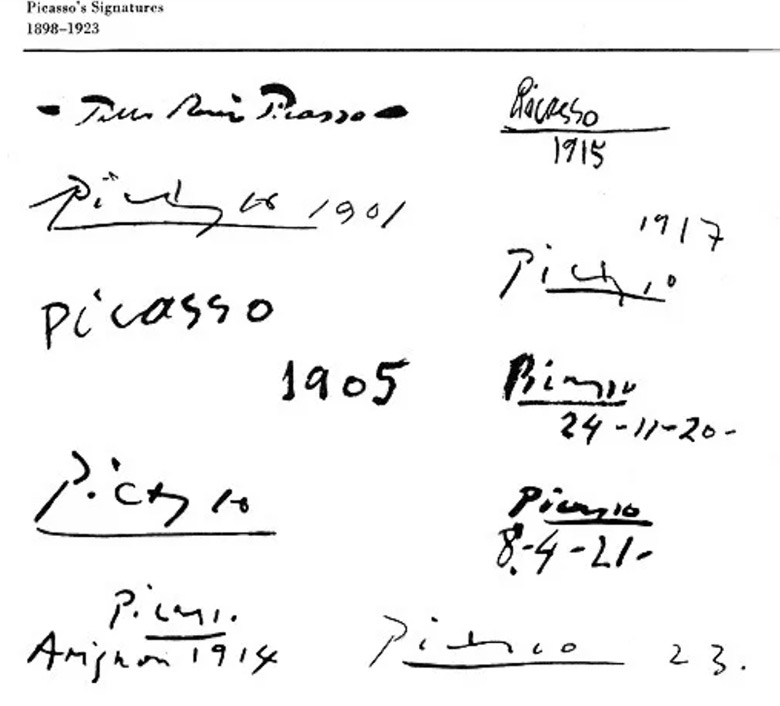 Picasso's Signatures
1898–1923
- Ruiz Picasso -
Picasso 1901
Picasso
1905
Picasso
Picasso
Avignon 1914
Picasso
1915
1917
Picasso
Picasso
24-11-20-
Picasso
8-4-21-
Picasso 23.